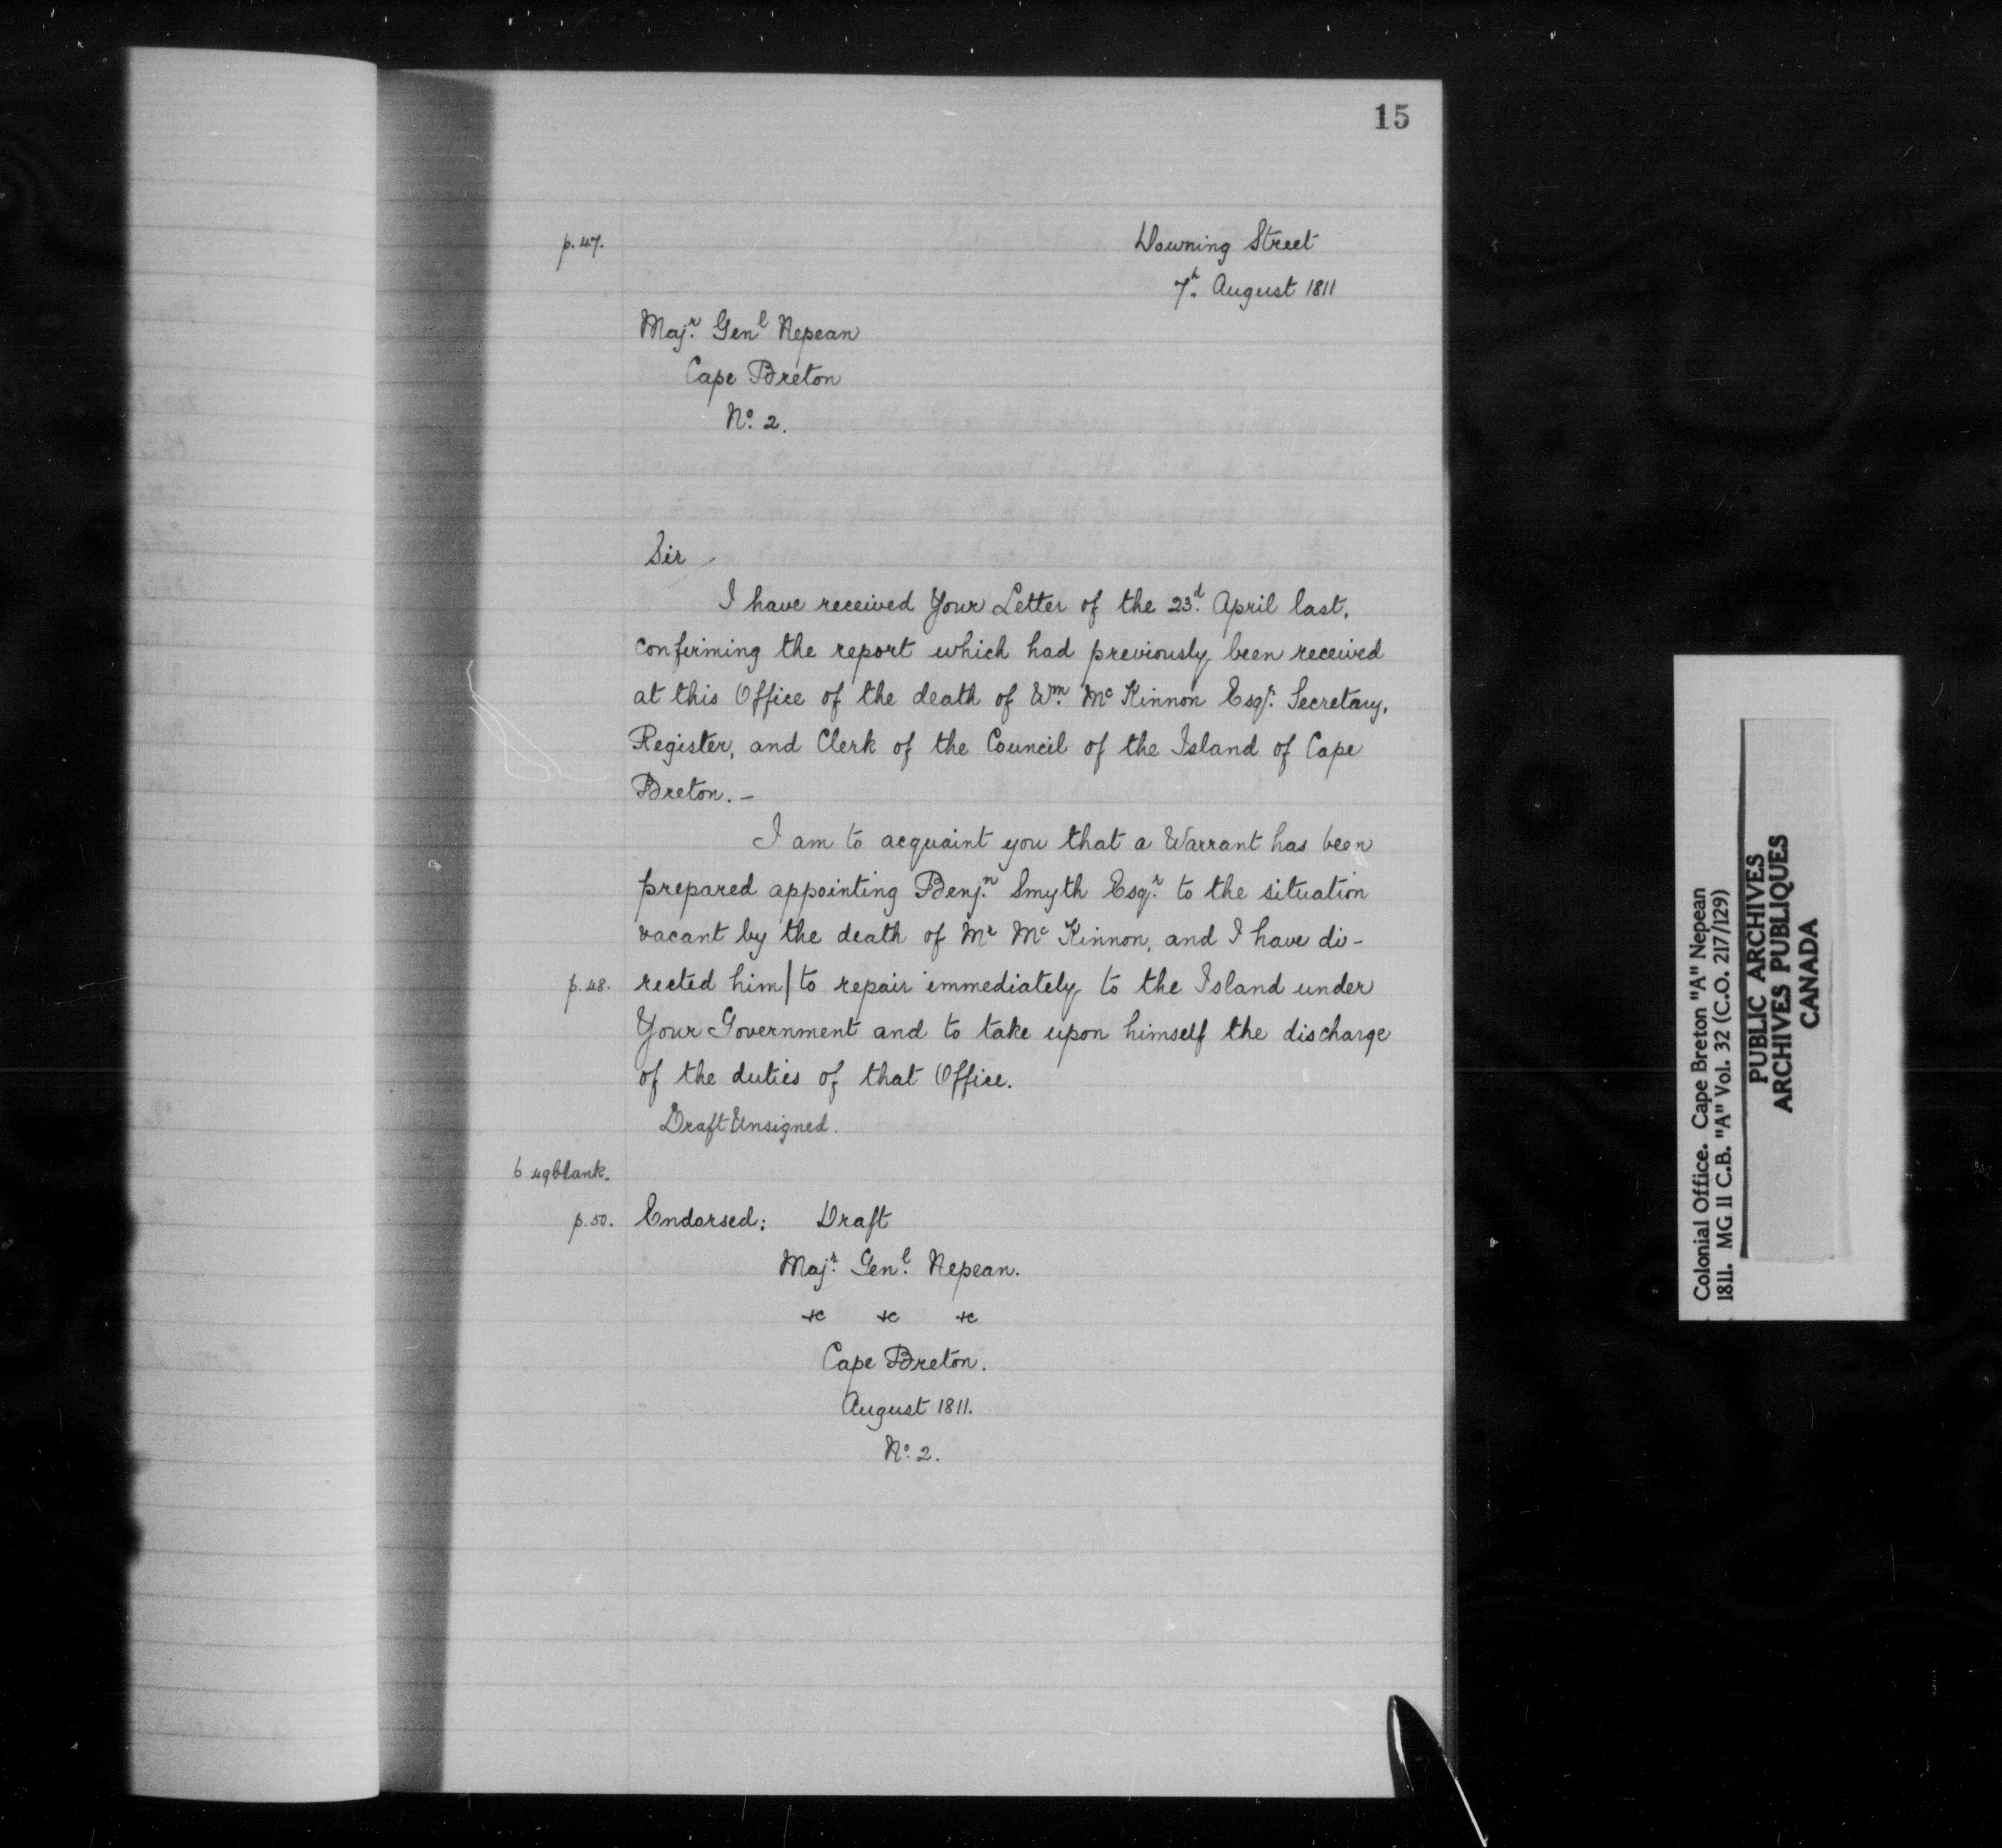 15
p. 47.
Downing Street
7h. August 1811
Majr. Genl Nepean
Cape Breton
No. 2.
Sir
I have received Your Letter of the 23d. April last,
confirming the report which had previously been received
at this Office of the death of Wm. Mc Kinnon Esqr. Secretary,
Register, and Clerk of the Council of the Island of Cape
Breton. —
I am to acquaint you that a Warrant has been
prepared appointing Benjn. Smyth Esqr. to the situation
vacant by the death of Mr Mc Kinnon, and I have di-
p. 48. rected him | to repair immediately to the Island under
Your Government and to take upon himself the discharge
of the duties of that Office.
Draft Unsigned.
p. 49 blank.
p. 50. Endorsed: Draft
Majr. Genl. Nepean.
&c &c &c
Cape Breton.
August 1811.
No. 2.
Colonial Office. Cape Breton "A" Nepean
1811. MG 11 C.B. "A" Vol. 32 (C.O. 217/129)
PUBLIC ARCHIVES
ARCHIVES PUBLIQUES
CANADA